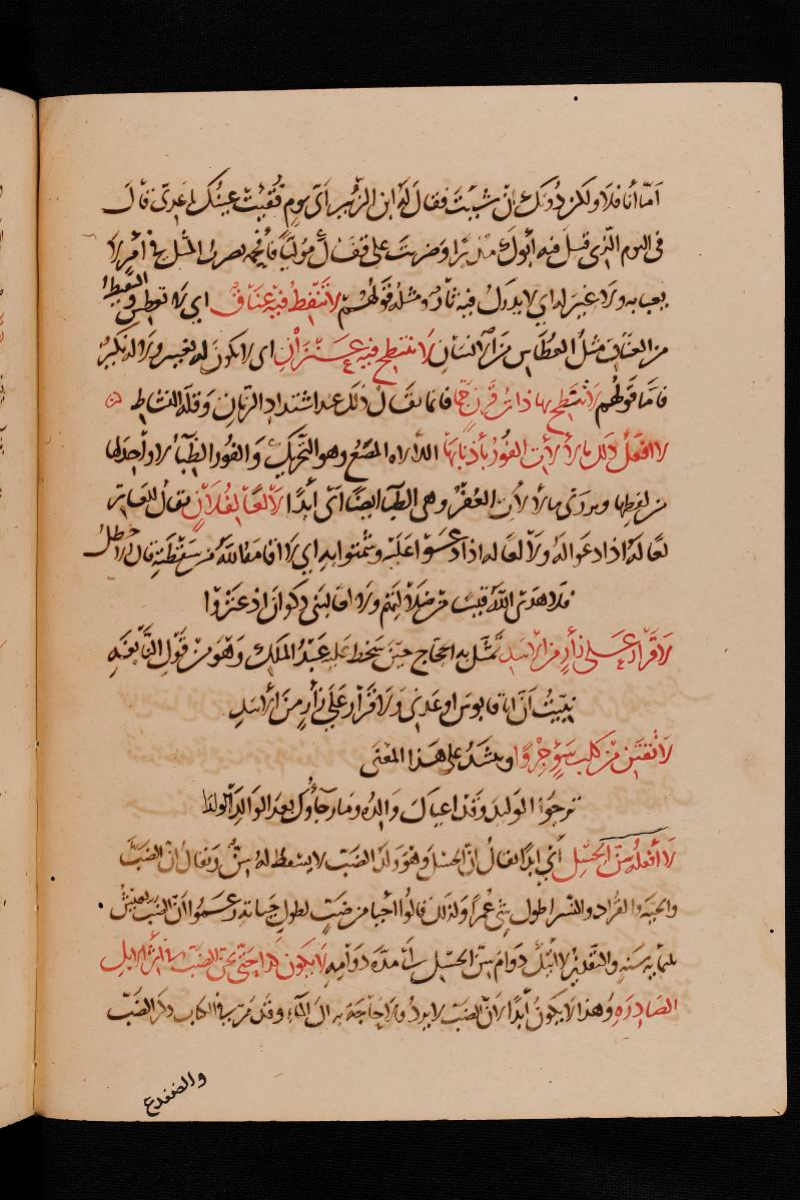 اَمّا أنا فلا ولكن دُونَك ان شِئتَ فقال لَهُ ابن الزُّبير اَيَّ يومٍ فُقِئت عينُك يا عَدِيّ قالَ
فى اليوم الَّذِى قتل فيه أبوك مدبِرًا وضربتَ على قفاك مُولّيًا فأفحمه يضرب المثل فى أمرٍ لا
يعبأ به ولا غير له اى لا يدرك فيه ثأرٌ ومثله قَولُهُمْ لَا تَنْفِطُ فيهِ عَنَاقٌ اى لا تعطس والنفيط
من العناق مثلُ العُطَاسِ من الانسان لَا تنتطح فيه عَنْزَانِ اى لا يكون له تغيير ولا له نكير
فامّا قولهُم لا تنتطح بها ذات قَرنٍ جَمّا فانما يقال ذلك عند اشتداد الزمان وقلة النشاط
لا افعَلُ ذلك ما لألأتِ الفُورُ بأذنابِهَا اللألأه المَصْعُ وهو التَّحريك وَالفُور الظِّبَآءُ لا واحِدَ لها
من لفظِها ويروى ما لألأتِ العُفْرُ وهى الظبآء ايضًا اَى أبدًا لَا لَعًا لِفُلَانٍ يقالُ للعاثِرِ
لعًا لَهُ اذا دعَوا لهُ ولَا لعًا له اذا دَعَوْا علَيْهِ وشمتوا به اى لا اقامَهُ اللّهُ من سَقْطَتِهِ قال الاخطلُ
فلا هَدى اللّهُ قيسًا من ضَلَالتِهِمْ ولا لعًا لبنى ذكوان اذ عَثَرُوا
لَا قَرَارَ عَلى زأرٍ من الاسَدِ تمثّل به الحجّاج حينَ سَخط عَليه عَبْدُ الملك وَهُوَ من قَوْلِ النَّابغة
نُبِّئتُ اَنَّ ابا قابوسَ اوعَدنِى وَلَا قَرَارَ عَلى زأرٍ منَ الاسَدِ
لَا تَقْتَنِ مِنْ كَلبِ سَوْءٍ جِرْوًا وينشدُ على هَذا المعْنَى
ترجوا الوليدَ وقد اعياكَ وَالِدُه وما رجَآؤُكَ بعدَ الوَالدِ الولدا
لا أفعَلُه سِنَّ الحِسْلِ أى ابدًا يقالُ انّ الحِسْلَ وهُوَ ولدُ الضَبّ لا يسقط لهُ سِنٌّ ويقالُ انّ الضَبَّ
والحيّة والقُراد والنّسر اطول شىءٍ عُمرًا ولذلك قالُوا احيا من ضَبٍّ لطولِ حيَاته وزعَمُوا أنَّ الضبّ يعيشُ
ثلثمايه سَنه والتّقديرُ لا آتِيكَ دوَامَ سِنّ الحسْل اى مدّة دَوَامِهِ لَا يكون كذا حَتّى يحنّ الضبّ فى اثرِ الابِلِ
الصَادِرَهِ وهذا لا يكونُ أبدًا لانّ الضبّ لا يرد ولا حَاجَةَ به الى المآءِ وقد مرّ فى الكتاب ذكر الضَبّ
والضفدع